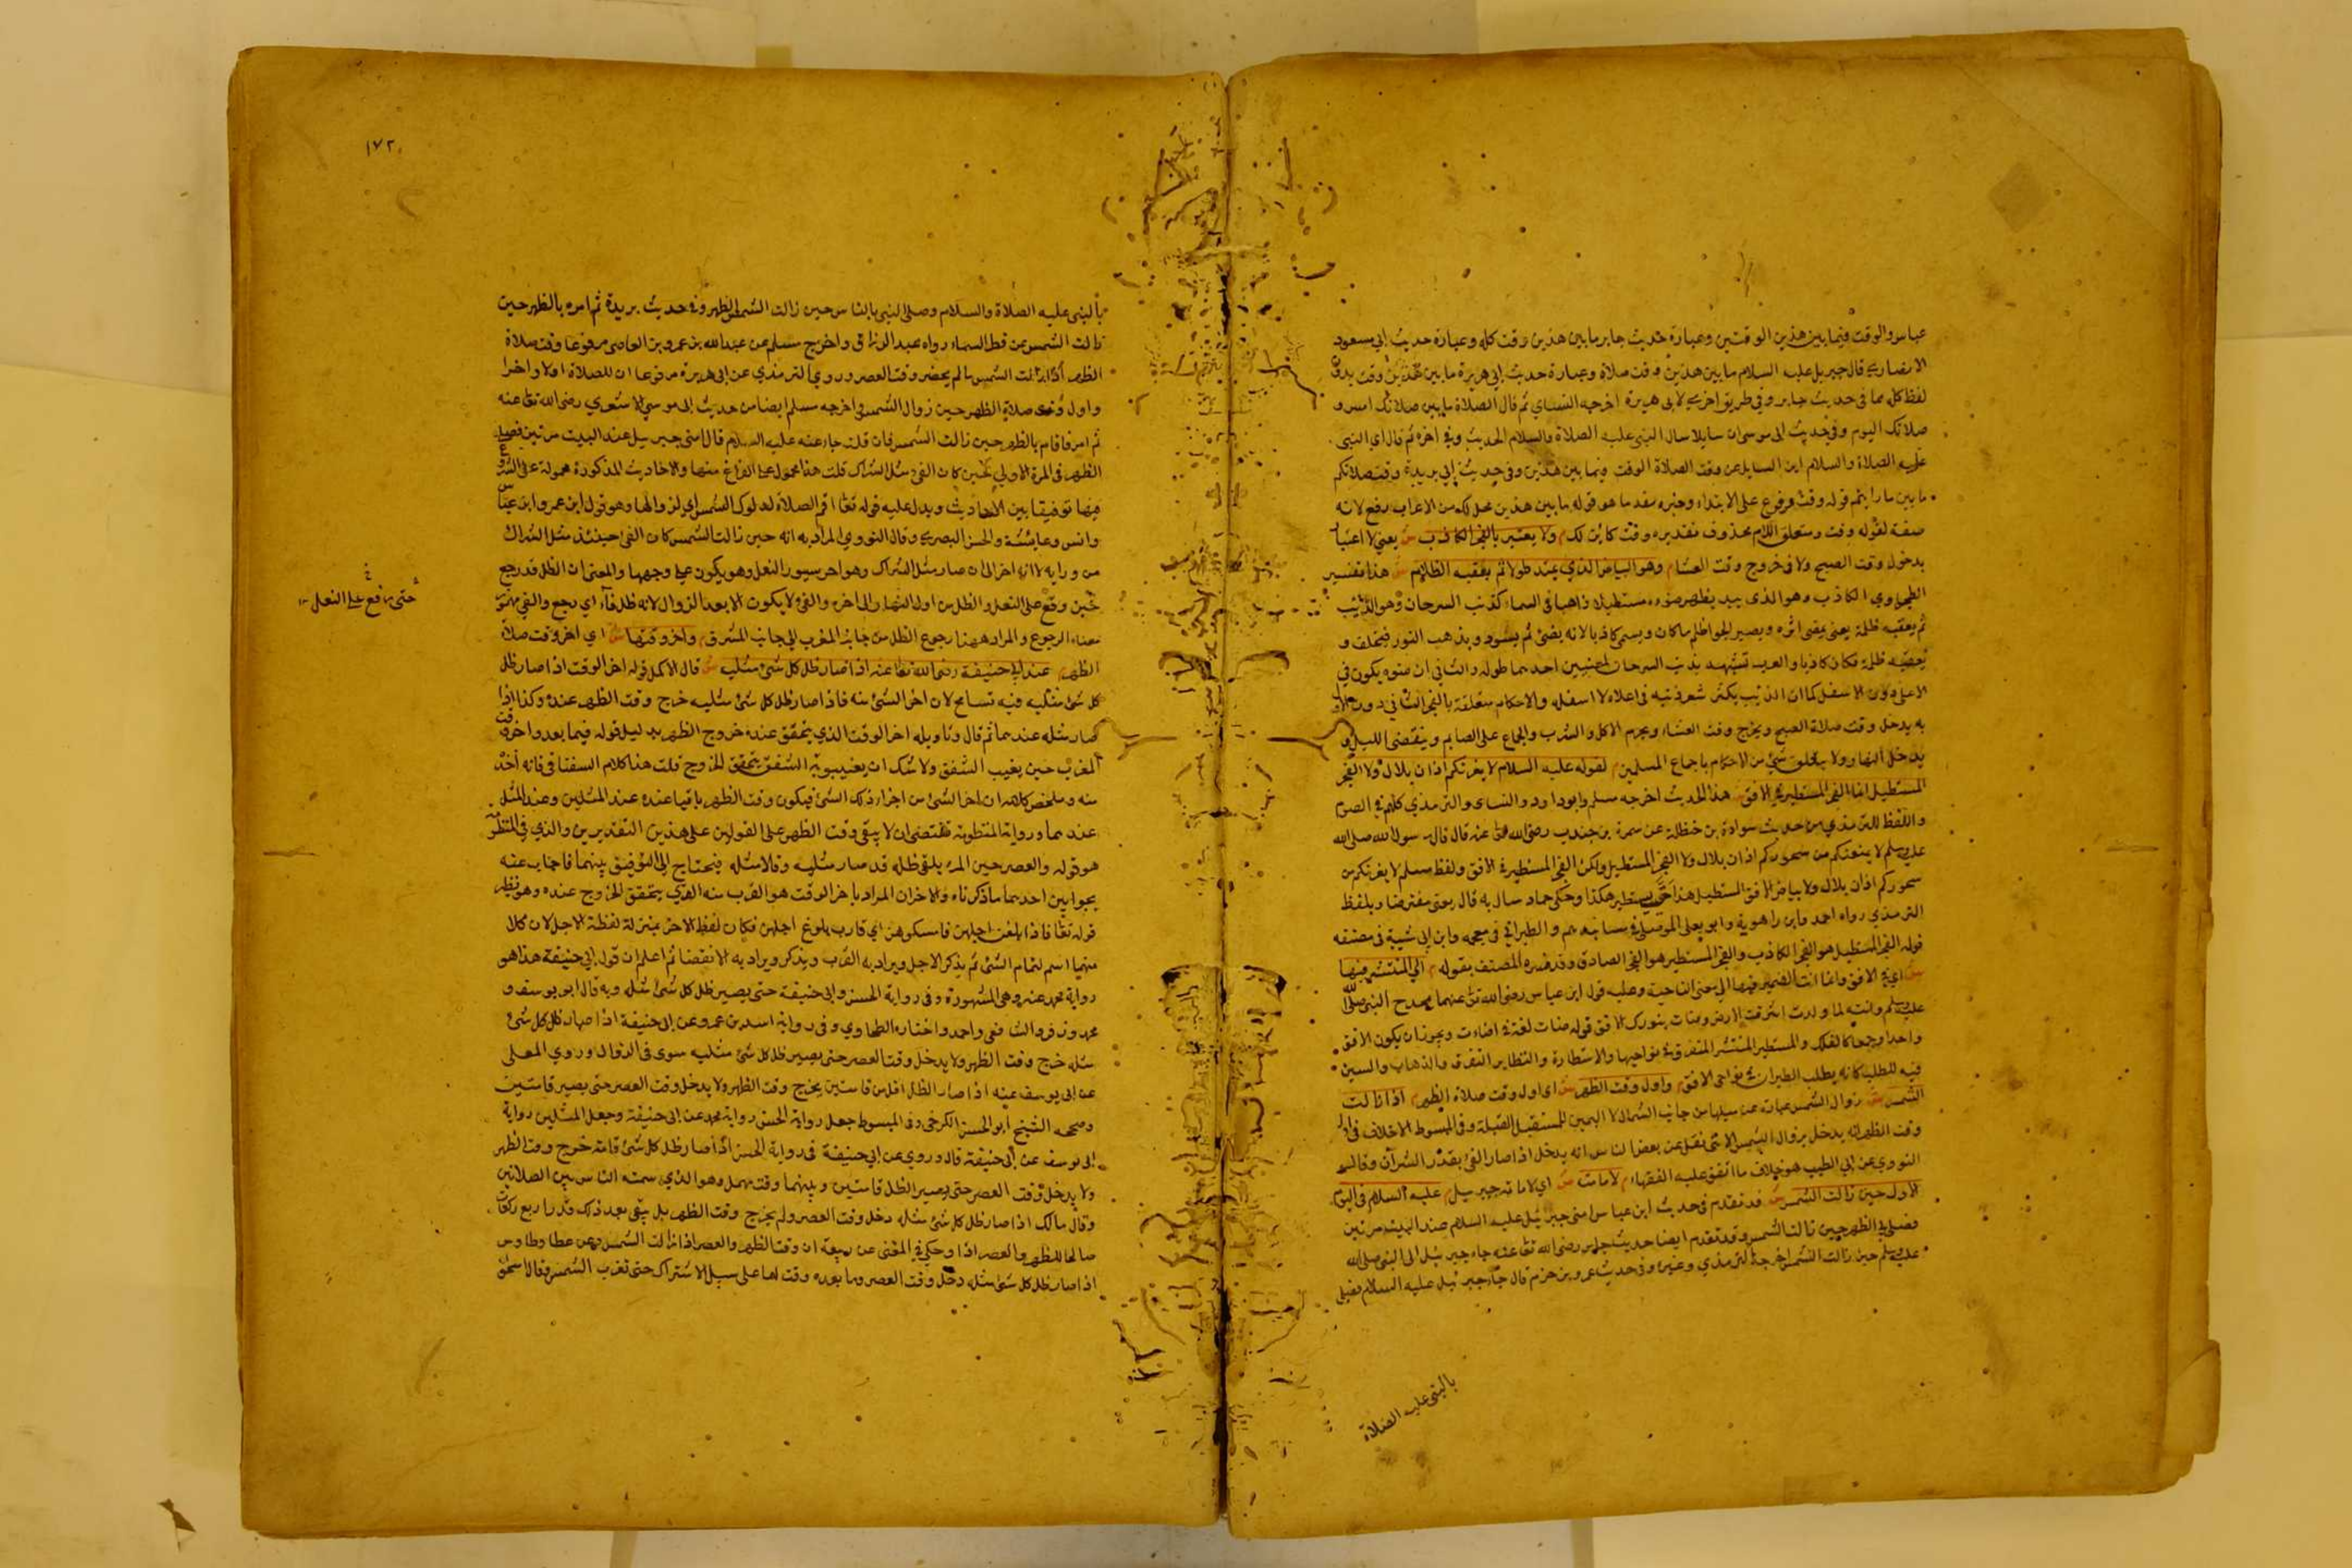 عباس والوقت فيما بين هذين الوقتين وعبارة حديث جابر ما بين هذين وقت كله وعبارة حديث ابي مسعود
الانصاري قال جبريل عليه السلام ما بين هذين وقت صلاة وعبارة حديث ابي هريرة ما بين هذين وقت بدون
لفظ كله مما في حديث جابر وفي طريق اخرى لابي هريرة اخرجه النسائي ثم قال الصلاة ما بين صلاتك امس و
صلاتك اليوم وفي حديث ابي موسى ان سايلا سال النبي عليه الصلاة والسلام الحديث وفي اخره ثم قال اي النبي
عليه الصلاة والسلام اين السايل عن وقت الصلاة الوقت فيما بين هذين وفي حديث ابي بريدة وقت صلاتكم
ما بين ما رايتم قوله وقت مرفوع على الابتداء وخبره مقدما هو قوله ما بين هذين محل لك من الاعراب رفع لانه
صفة لقوله وقت ومتعلق اللام محذوف تقديره وقت كاين لك م ولا يعتبر بالفجر الكاذب ش يعني لا اعتبار
بدخول وقت الصبح ولا في خروج وقت العشا م وهو البياض الذي يبدو طولا ثم يعقبه الظلام ش هذا تفسير
الطحاوي الكاذب وهو الذي يبد يظهر ضوءه مستطيلا ذاهبا في السماء كذنب السرحان وهو الذئب
ثم يعقبه ظلمة يعني يمضي اثره ويصير الجو اظلم ما كان ويسمى كاذبا لانه يضئ ثم يسود ويذهب النور فيخلف و
يعقبه ظلمة فكان كاذبا والعرب تشبهه بذنب السرحان لمعنيين احدهما طوله والثاني ان ضوءه يكون في
الاعلى دون الاسفل كما ان الذئب يكثر شعر ذنبه في اعلاه لا اسفله والاحكام متعلقة بالفجر الثاني دون الاول
به يدخل وقت صلاة الصبح ويخرج وقت العشاء ويحرم الاكل والشرب والجماع على الصايم وينقضي الليل و
يدخل النهار ولا يتعلق شئ من الاحكام باجماع المسلمين م لقوله عليه السلام لا يغرنكم اذان بلال ولا الفجر
المستطيل انما الفجر المستطير في الافق ش هذا الحديث اخرجه مسلم وابو داود والنساي والترمذي كلهم في الصوم
واللفظ للترمذي من حديث سوادة بن حنظلة عن سمرة بن جندب رضي الله تعالى عنه قال قال رسول الله صلى الله
عليه وسلم لا يمنعنكم من سحوركم اذان بلال ولا الفجر المستطيل ولكن الفجر المستطير في الافق ولفظ مسلم لا يغرنكم من
سحوركم اذان بلال ولا بياض الافق المستطيل هذا حتى يستطير هكذا وحكى حماد سال به قال يعني معترضا وبلفظ
الترمذي رواه احمد وابن راهوية وابو يعلى الموصلي في مسانيدهم والطبراني في معجمه وابن ابي شيبة في مصنفه
قوله الفجر المستطيل هو الفجر الكاذب والفجر المستطير هو الفجر الصادق وقد فسره المصنف بقوله م اي المنتشر فيها
ش اي في الافق وانما انث الضمير فيها الى معنى الناحية وعليه قول ابن عباس رضي الله تعالى عنهما يمدح النبي صلى الله
عليه وسلم وانت لما ولدت اشرقت الارض وضات بنورك الافق قوله ضات لغة في اضاءت ويجوز ان يكون الافق
واحدا وجمعا كالفلك والمستطير المنتشر المتفرق في نواحيها والاستطارة والتطاير التفرق والذهاب والسين
فيه للطلب كانه يطلب الطيران في نواحي الافق م واول وقت الظهر ش اي اول وقت صلاة الظهر م اذا زالت
الشمس ش زوال الشمس عبارة عن ميلها من جانب الشمال لا اليمين للمستقبل القبلة وفي المبسوط لا خلاف في اول
وقت الظهر انه يدخل بزوال الشمس الا شئ نقل عن بعض الناس انه يدخل اذا صار الفئ بقدر الشراك وقال
النووي عن ابي الطيب هو خلاف ما اتفق عليه الفقهاء م لامامة ش اي لامامة جبريل م عليه السلام في اليوم
الاول حين زالت الشمس ش قد تقدم في حديث ابن عباس امني جبرئيل عليه السلام عند البيت مرتين
فصلى في الظهر حين زالت الشمس وقد تقدم ايضا حديث جابر رضي الله تعالى عنه جاء جبرئيل الى النبي صلى الله
عليه وسلم حين زالت الشمس اخرجه الترمذي وغيره وفي حديث عمرو بن حزم قال جاء جبرئيل عليه السلام فصلى
بالنبي عليه الصلاة
١٧٢
بالنبي عليه الصلاة والسلام وصلى النبي بالناس حين زالت الشمس الظهر وفي حديث بريدة ثم امره بالظهر حين
زالت الشمس عن قط السماء رواه عبد الرزاق واخرج مسلم عن عبد الله بن عمرو بن العاص مرفوعا وقت صلاة
الظهر اذا زالت الشمس ما لم يحضر وقت العصر وروي الترمذي عن ابي هريرة مرفوعا ان للصلاة اولا واخرا
واول وقت صلاة الظهر حين زوال الشمس واخرجه مسلم ايضا من حديث ابي موسى الاشعري رضي الله تعالى عنه
ثم امر فاقام بالظهر حين زالت الشمس فان قلت جاء عنه عليه السلام قال امني جبرييل عند البيت مرتين فصلى
الظهر في المرة الاولى حين كان الفئ مثل الشراك قلت هذا محمول على الفراغ منها والاحاديث المذكورة محمولة على الشروع
فيها توفيقا بين الاحاديث ويدل عليه قوله تعالى اقم الصلاة لدلوك الشمس اي لزوالها وهو قول ابن عمر وابن عباس
وانس وعايشة والحسن البصري وقال النووي المراد به انه حين زالت الشمس كان الفئ حينئذ مثل الشراك
من ورايه لا انه اخر الى ان صار مثل الشراك وهو احد سيور النعل وهو يكون على وجهها والمعنى ان الظل قد رجع
حين وقع على النعل والظل من اول النهار الى اخره والفئ لا يكون الا بعد الزوال لانه ظل فاء اي رجع والفئ مهموز
معناه الرجوع والمراد ههنا رجوع الظل من جانب المغرب الى جانب المشرق م واخر وقتها ش اي اخر وقت صلاة
الظهر م عند ابي حنيفة رضي الله تعالى عنه اذا صار ظل كل شئ مثليه ش قال الاكمل قوله اخر الوقت اذا صار ظل
كل شئ مثليه فيه تسامح لان اخر الشئ منه فاذا صار ظل كل شئ مثليه خرج وقت الظهر عنده وكذا اذا
صار مثله عندهما ثم قال وتاويله اخر الوقت الذي يتحقق عنده خروج الظهر بدليل قوله فيما بعد واخر وقت
المغرب حين يغيب الشفق ولا شك ان بغيبوبة الشفق يتحقق الخروج قلت هذا كلام السغناقي فانه اخذه
منه وملخص كلامه ان اخر الشئ من اجزاء ذلك الشئ فيكون وقت الظهر باقيا عنده عند المثلين وعند المثل
عندهما ورواية المنظومة تقتضي ان لا يبقى وقت الظهر على القولين على هذين التقديرين والذي في المنظومة
هو قوله والعصر حين المرء يلقى ظله قد صار مثليه وقالا مثله فيحتاج الى التوفيق بينهما فاجاب عنه
بجوابين احدهما ما ذكرناه والاخر ان المراد باخر الوقت هو القرب منه الذي يتحقق الخروج عنده وهو نظير
قوله تعالى فاذا بلغن اجلهن فامسكوهن اي قارب بلوغ اجلهن فكان لفظ الاخر بمنزلة لفظة الاجل لان كلا
منهما اسم لتمام الشئ ثم يذكر الاجل ويراد به القرب ويذكر ويراد به الانقضا ثم اعلم ان قول ابي حنيفة هذا هو
رواية محمد عنه وهي المشهورة وفي رواية الحسن وابي حنيفة حتى يصير ظل كل شئ مثله وبه قال ابو يوسف و
محمد وزفر والشافعي واحمد واختاره الطحاوي وفي رواية اسد بن عمرو عن ابي حنيفة اذا صار ظل كل شئ
مثله خرج وقت الظهر ولا يدخل وقت العصر حتى يصير ظل كل شئ مثليه سوى فئ الزوال وروي المعلى
عن ابي يوسف عنه اذا صار الظل اقل من قامتين يخرج وقت الظهر ولا يدخل وقت العصر حتى يصير قامتين
وصححه الشيخ ابو الحسن الكرخي وفي المبسوط جعل رواية الحسن رواية محمد عن ابي حنيفة وجعل المثلين رواية
ابي يوسف عن ابي حنيفة قال وروي عن ابي حنيفة في رواية الحسن اذا صار ظل كل شئ قامة خرج وقت الظهر
ولا يدخل وقت العصر حتى يصير الظل قامتين وبينهما وقت مهمل وهو الذي سمته الناس بين الصلاتين
وقال مالك اذا صار ظل كل شئ مثله دخل وقت العصر ولم يخرج وقت الظهر بل يبقى بعد ذلك قدر اربع ركعات
صالحا للظهر والعصر اذا وحكي في المغني عن ربيعة ان وقت الظهر والعصر اذا زالت الشمس وعن عطا وطاوس
اذا صار ظل كل شئ مثله دخل وقت العصر وما بعده وقت لهما على سبيل الاشتراك حتى تغرب الشمس وقال اسحق
حتى رافع على النعل